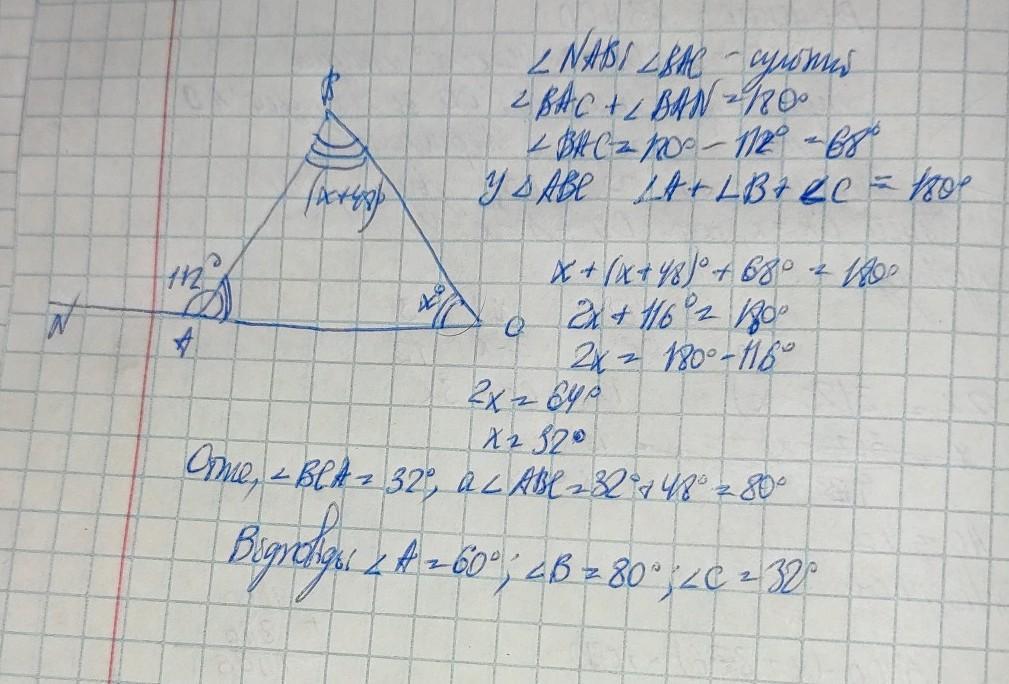 ∠NAB і ∠BAC - суміжні
∠BAC + ∠BAN = 180°
∠BAC = 180° - 112° = 68°
У △ABC ∠A + ∠B + ∠C = 180°
B
(x+48)°
112°
x°
N
A
C
x + (x+48)° + 68° = 180°
2x + 116° = 180°
2x = 180° - 116°
2x = 64°
x = 32°
Отже, ∠BCA = 32°, а ∠ABC = 32° + 48° = 80°
Відповідь: ∠A = 60°; ∠B = 80°; ∠C = 32°